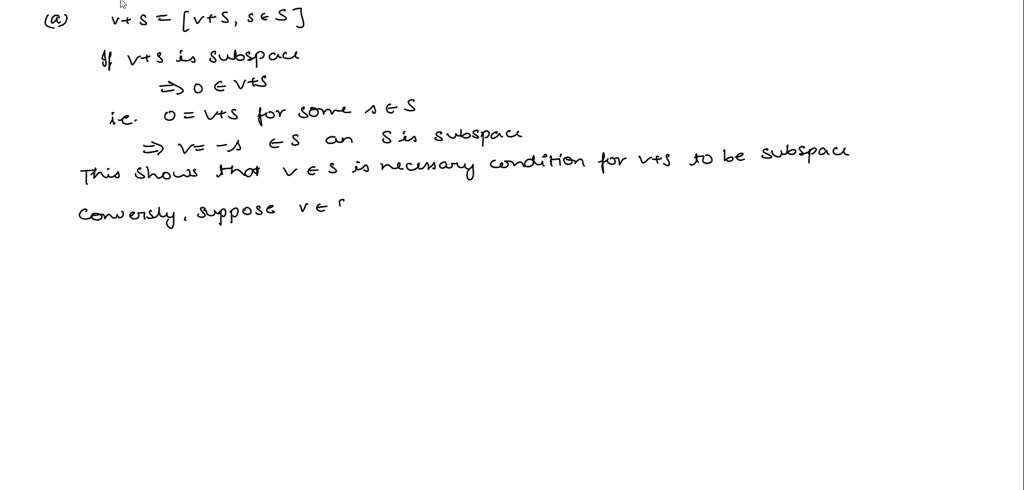 (a) v+S = [v+S, s∈S]
If v+S is subspace
⇒ 0 ∈ v+S
i.e. 0 = v+S for some s∈S
⇒ v = -s ∈ S as S is subspace
This shows that v∈S is necessary condition for v+S to be subspace
Conversly, suppose v∈